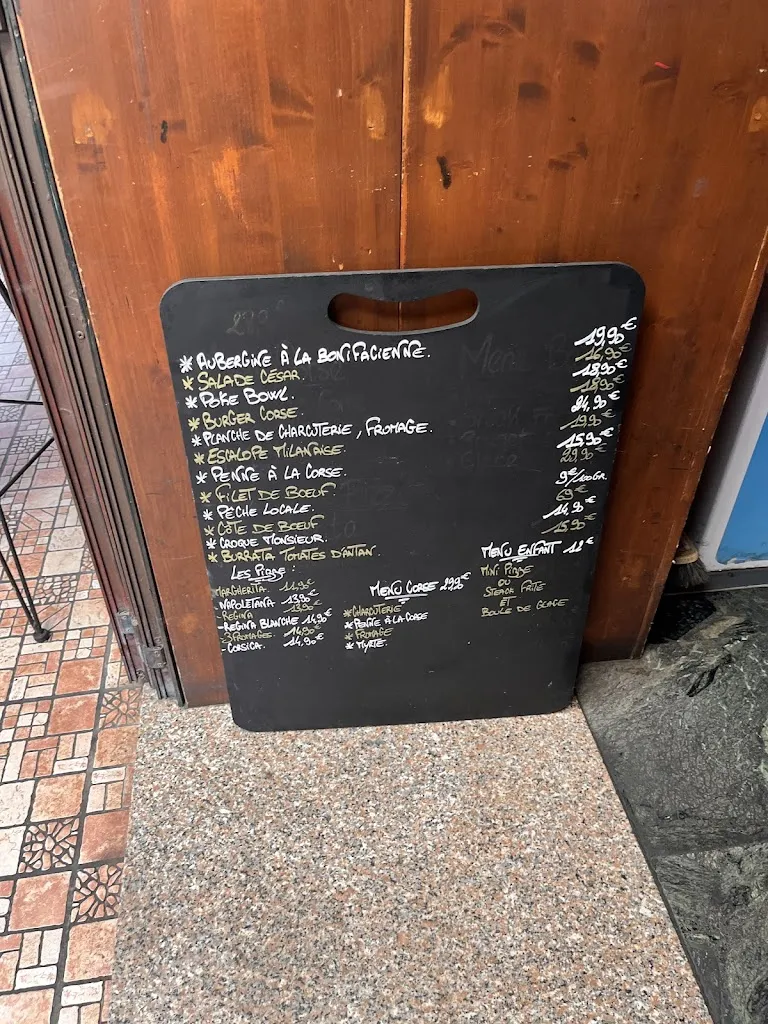 * AUBERGINE À LA BONIFACIENNE. 19,90€
* SALADE CÉSAR. 16,90€
* POKE BOWL. 18,90€
* BURGER CORSE. 18,90€
* PLANCHE DE CHARCUTERIE, FROMAGE. 24,90€
* ESCALOPE MILANAISE. 19,90€
* PENNE À LA CORSE. 15,90€
* FILET DE BOEUF. 29,90€
* PÊCHE LOCALE. 9€/100GR.
* CÔTE DE BOEUF 69€
* CROQUE MONSIEUR. 14,90€
* BURRATA TOMATES D'ANTAN. 15,90€
LES PIZZE :
MARGHERITA. 11,90€
NAPOLETANA. 13,90€
- REGINA 13,90€
- REGINA BLANCHE 14,90€
- 3 FROMAGES. 14,90€
- CORSICA. 14,90€
MENU CORSE 29,90€
* CHARCUTERIE
* PENNE À LA CORSE
* FROMAGE
* MYRTE.
MENU ENFANT 12€
MINI PIZZE
OU
STEACK FRITE
ET
BOULE DE GLACE